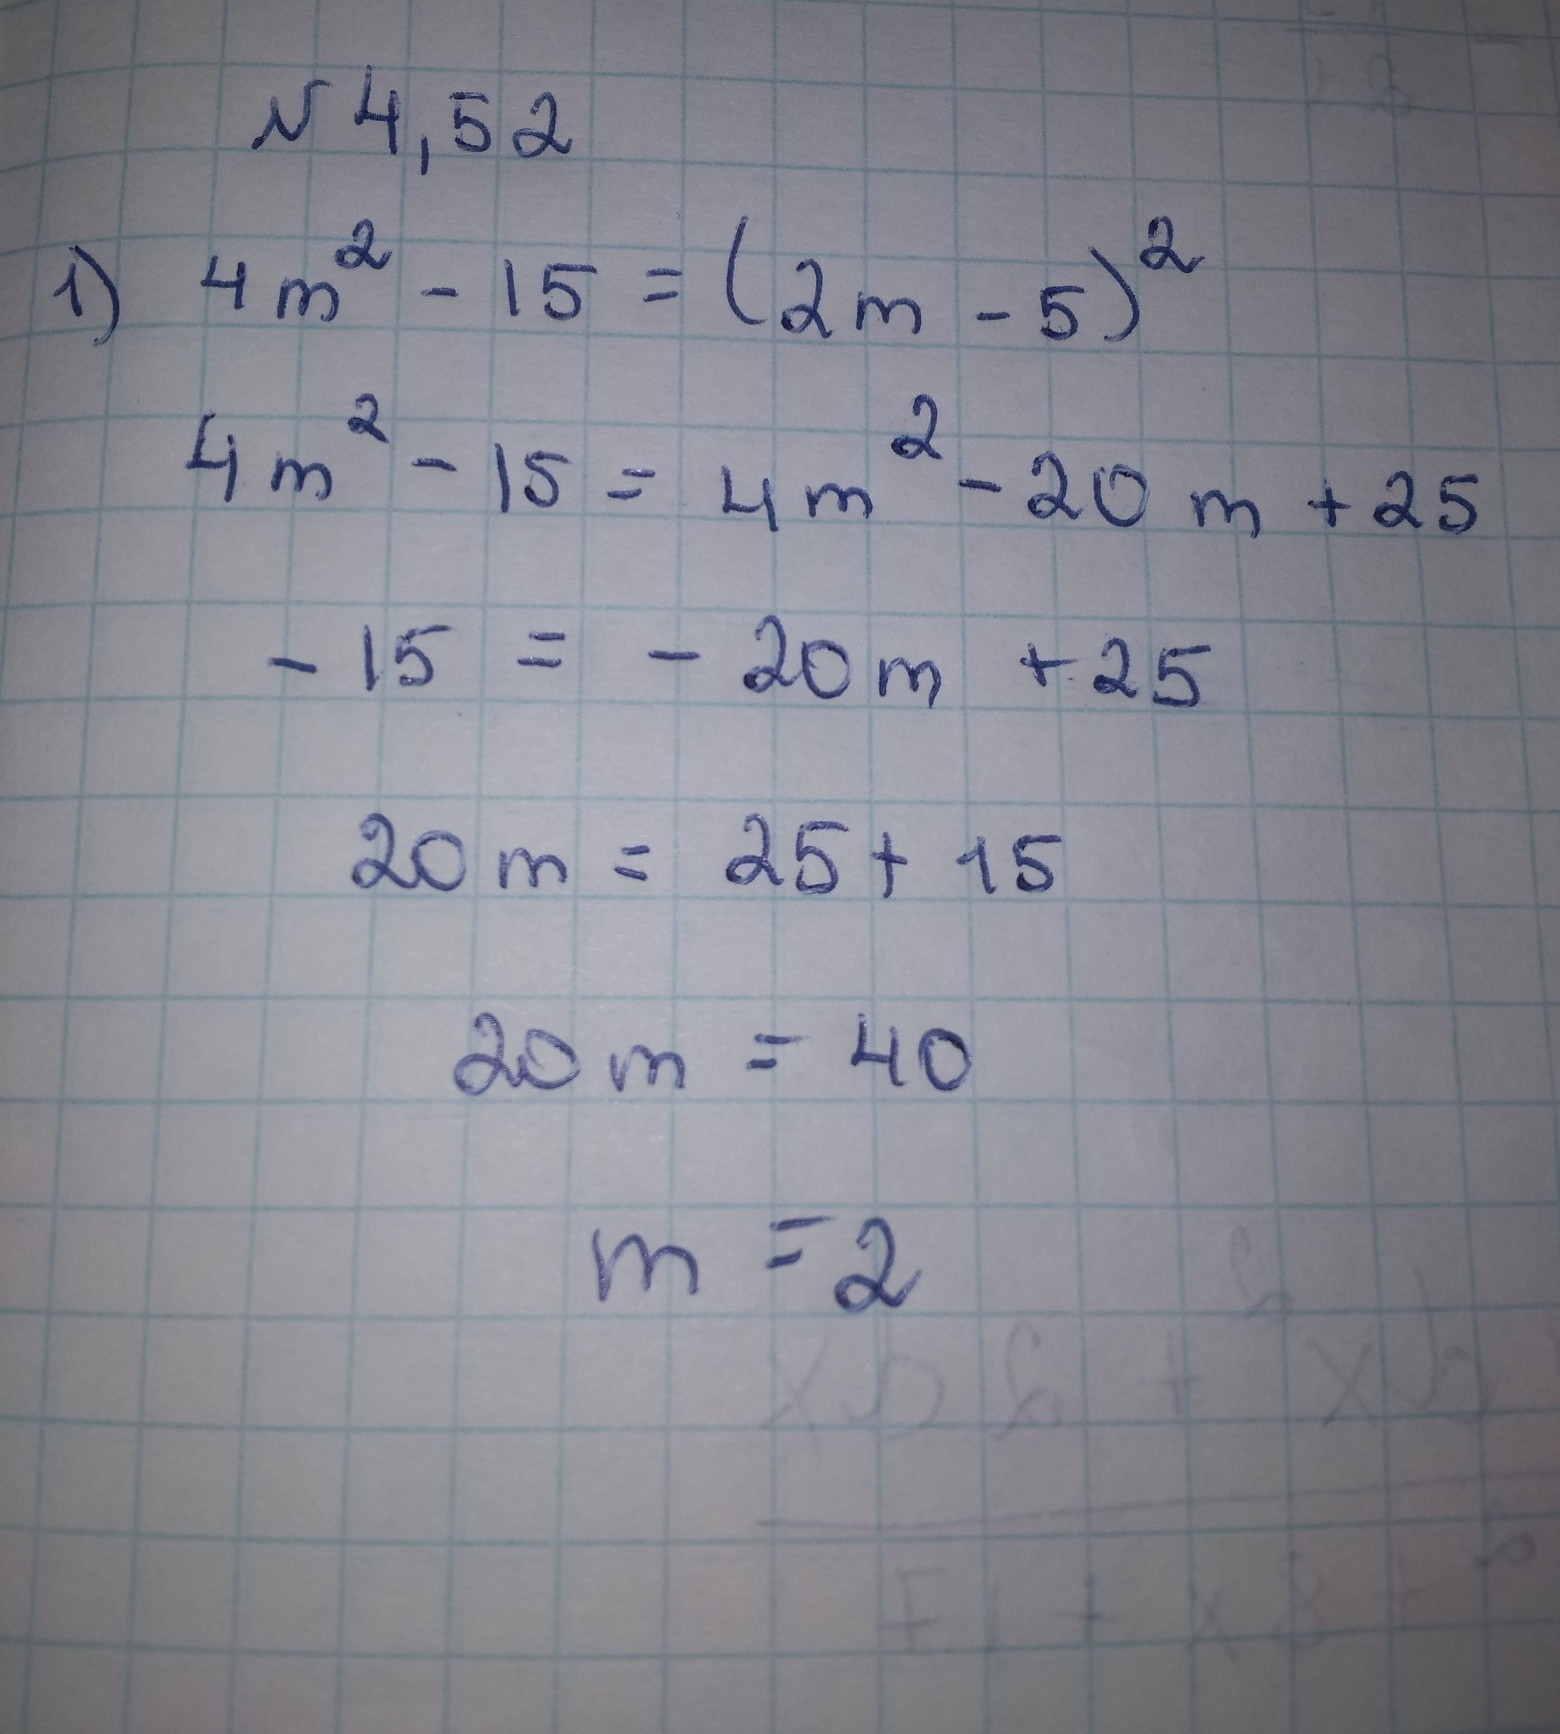 № 4,52
1) 4m² - 15 = (2m - 5)²
4m² - 15 = 4m² - 20m + 25
- 15 = - 20m + 25
20m = 25 + 15
20m = 40
m = 2